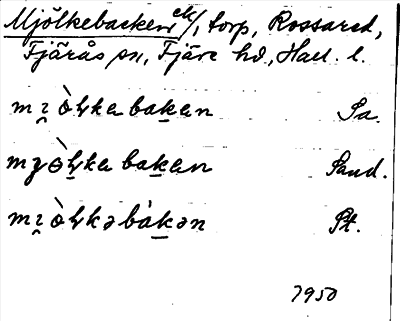 Mjölkebacken ck/, torp, Rossared,
Fjärås sn, Fjäre hd, Hall. l.
mɪ̯ὸⱨka bak̲an Sa.
mȷɵ̀ⱨ̲ka bak̲an Sand.
mɪ̯ὸⱨkə bàk̲ən Pt.
1950